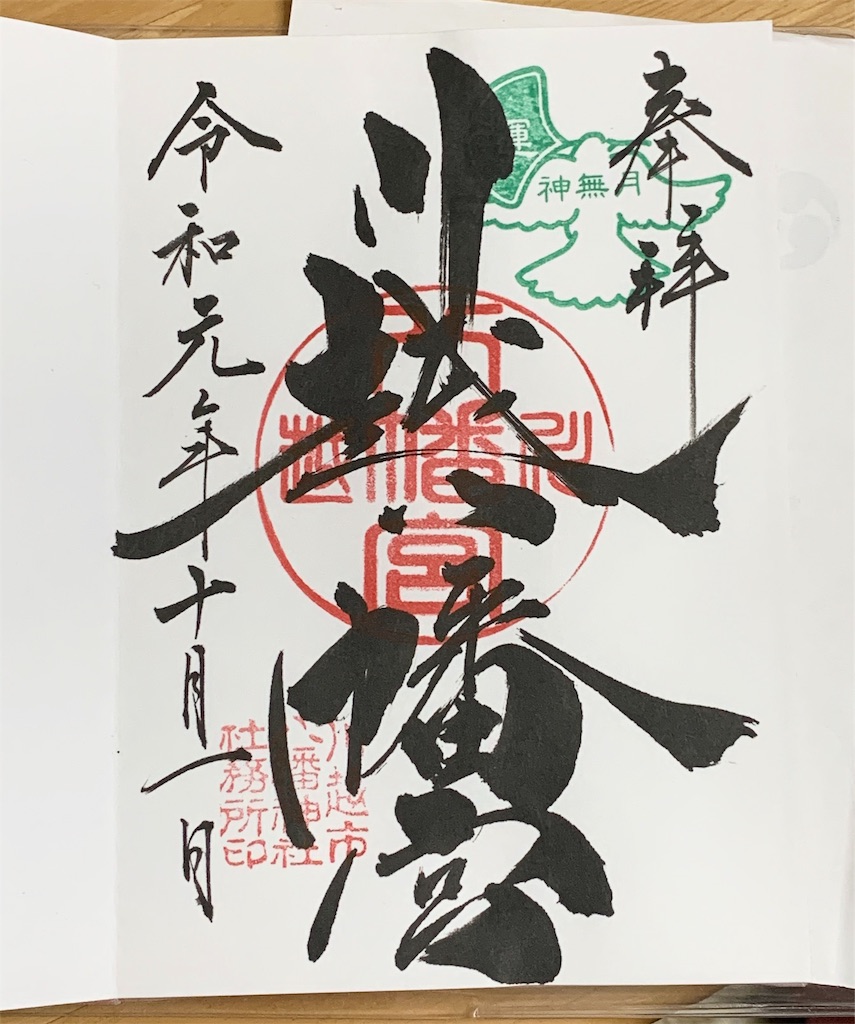 奉拝
川越八幡宮
令和元年十月一日
神無月
運
八幡宮
川越
川越市
八幡神社
社務所印